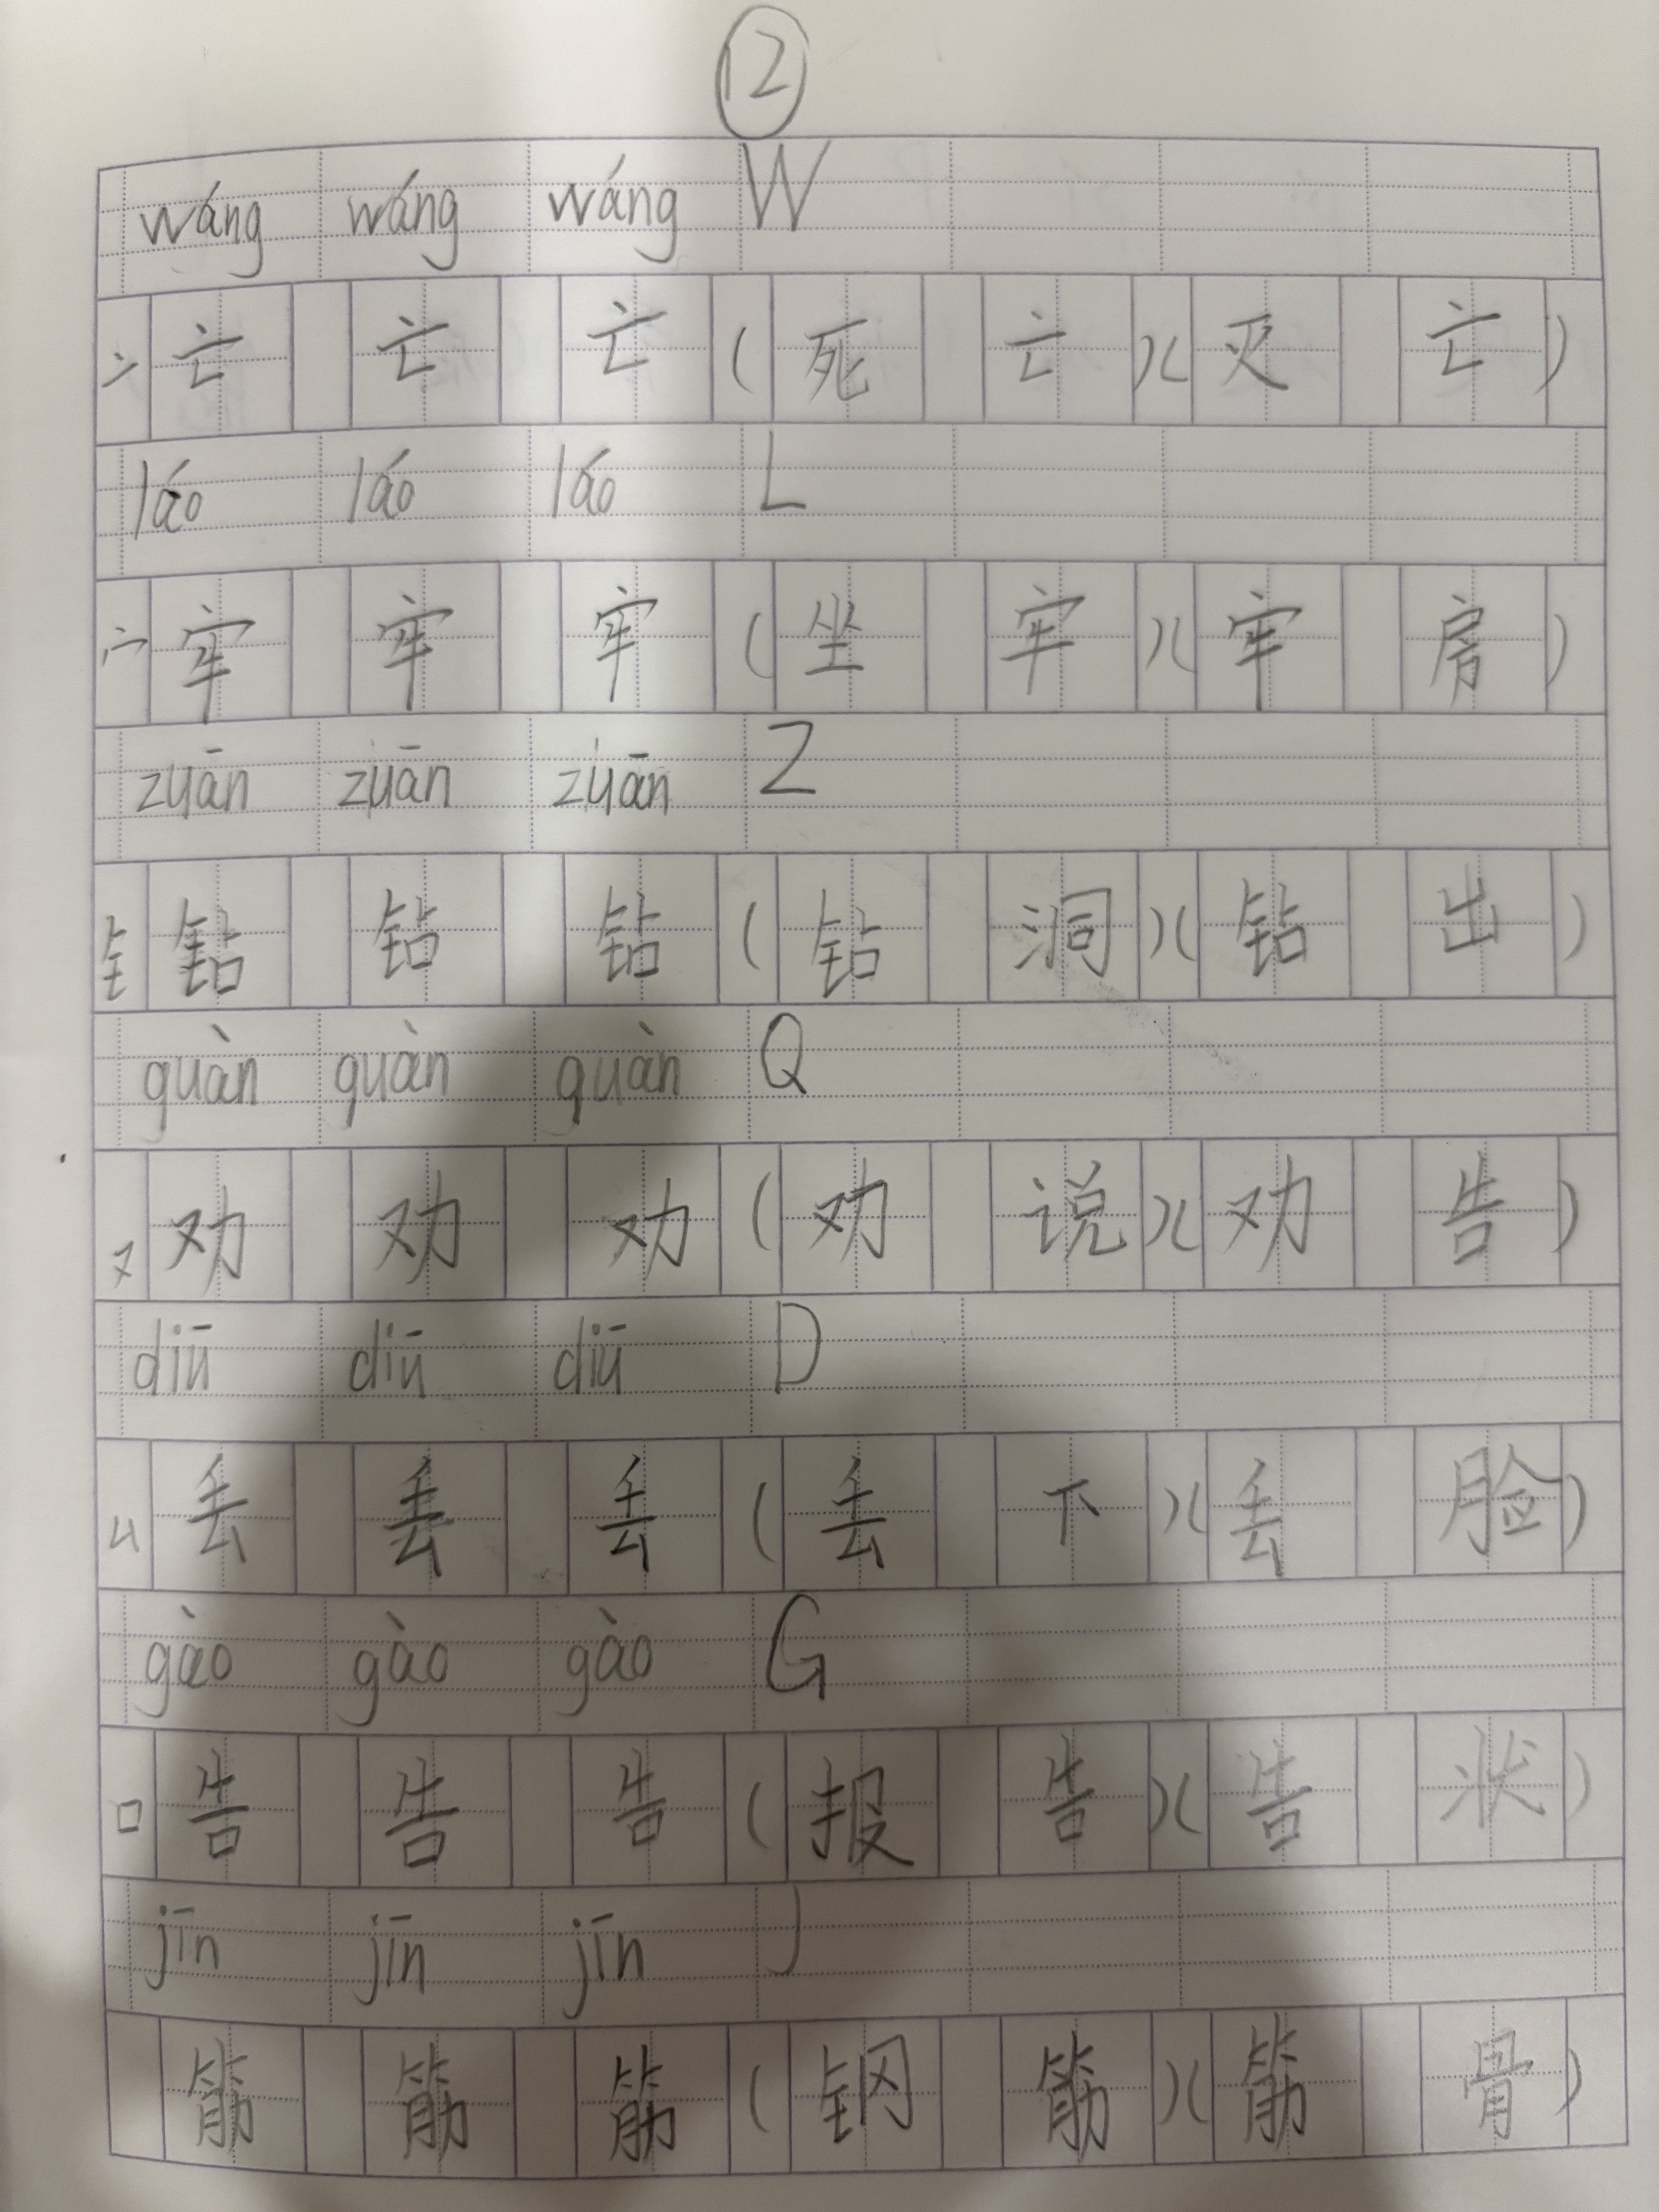 12
wáng wáng wáng W
亠 亡 亡 亡 (死亡)(灭亡)
láo láo láo L
宀 牢 牢 牢 (坐牢)(牢房)
zuān zuān zuān Z
钅 钻 钻 钻 (钻洞)(钻出)
quàn quàn quàn Q
又 劝 劝 劝 (劝说)(劝告)
diū diū diū D
厶 丢 丢 丢 (丢下)(丢脸)
gào gào gào G
口 告 告 告 (报告)(告状)
jīn jīn jīn J
筋 筋 筋 (钢筋)(筋骨)